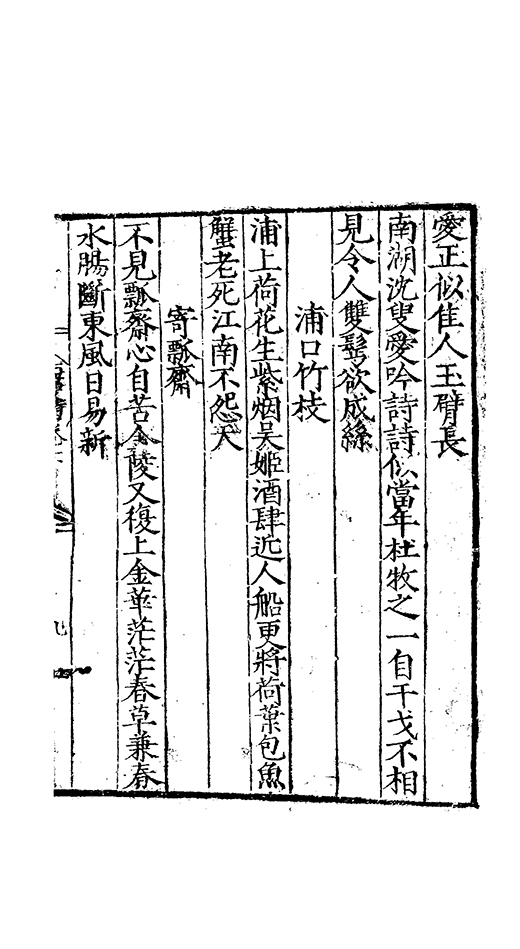 愛正似佳人玉臂長
南湖沈叟愛吟詩詩似當年杜牧之一自干戈不相
見令人雙鬢欲成絲
浦口竹枝
浦上荷花生紫烟吴姬酒肆近人船更將荷葉包魚
蟹老死江南不怨天
寄瓢齋
不見瓢齋心自苦金陵又復上金華茫茫春草兼春
水腸斷東風日易新
九